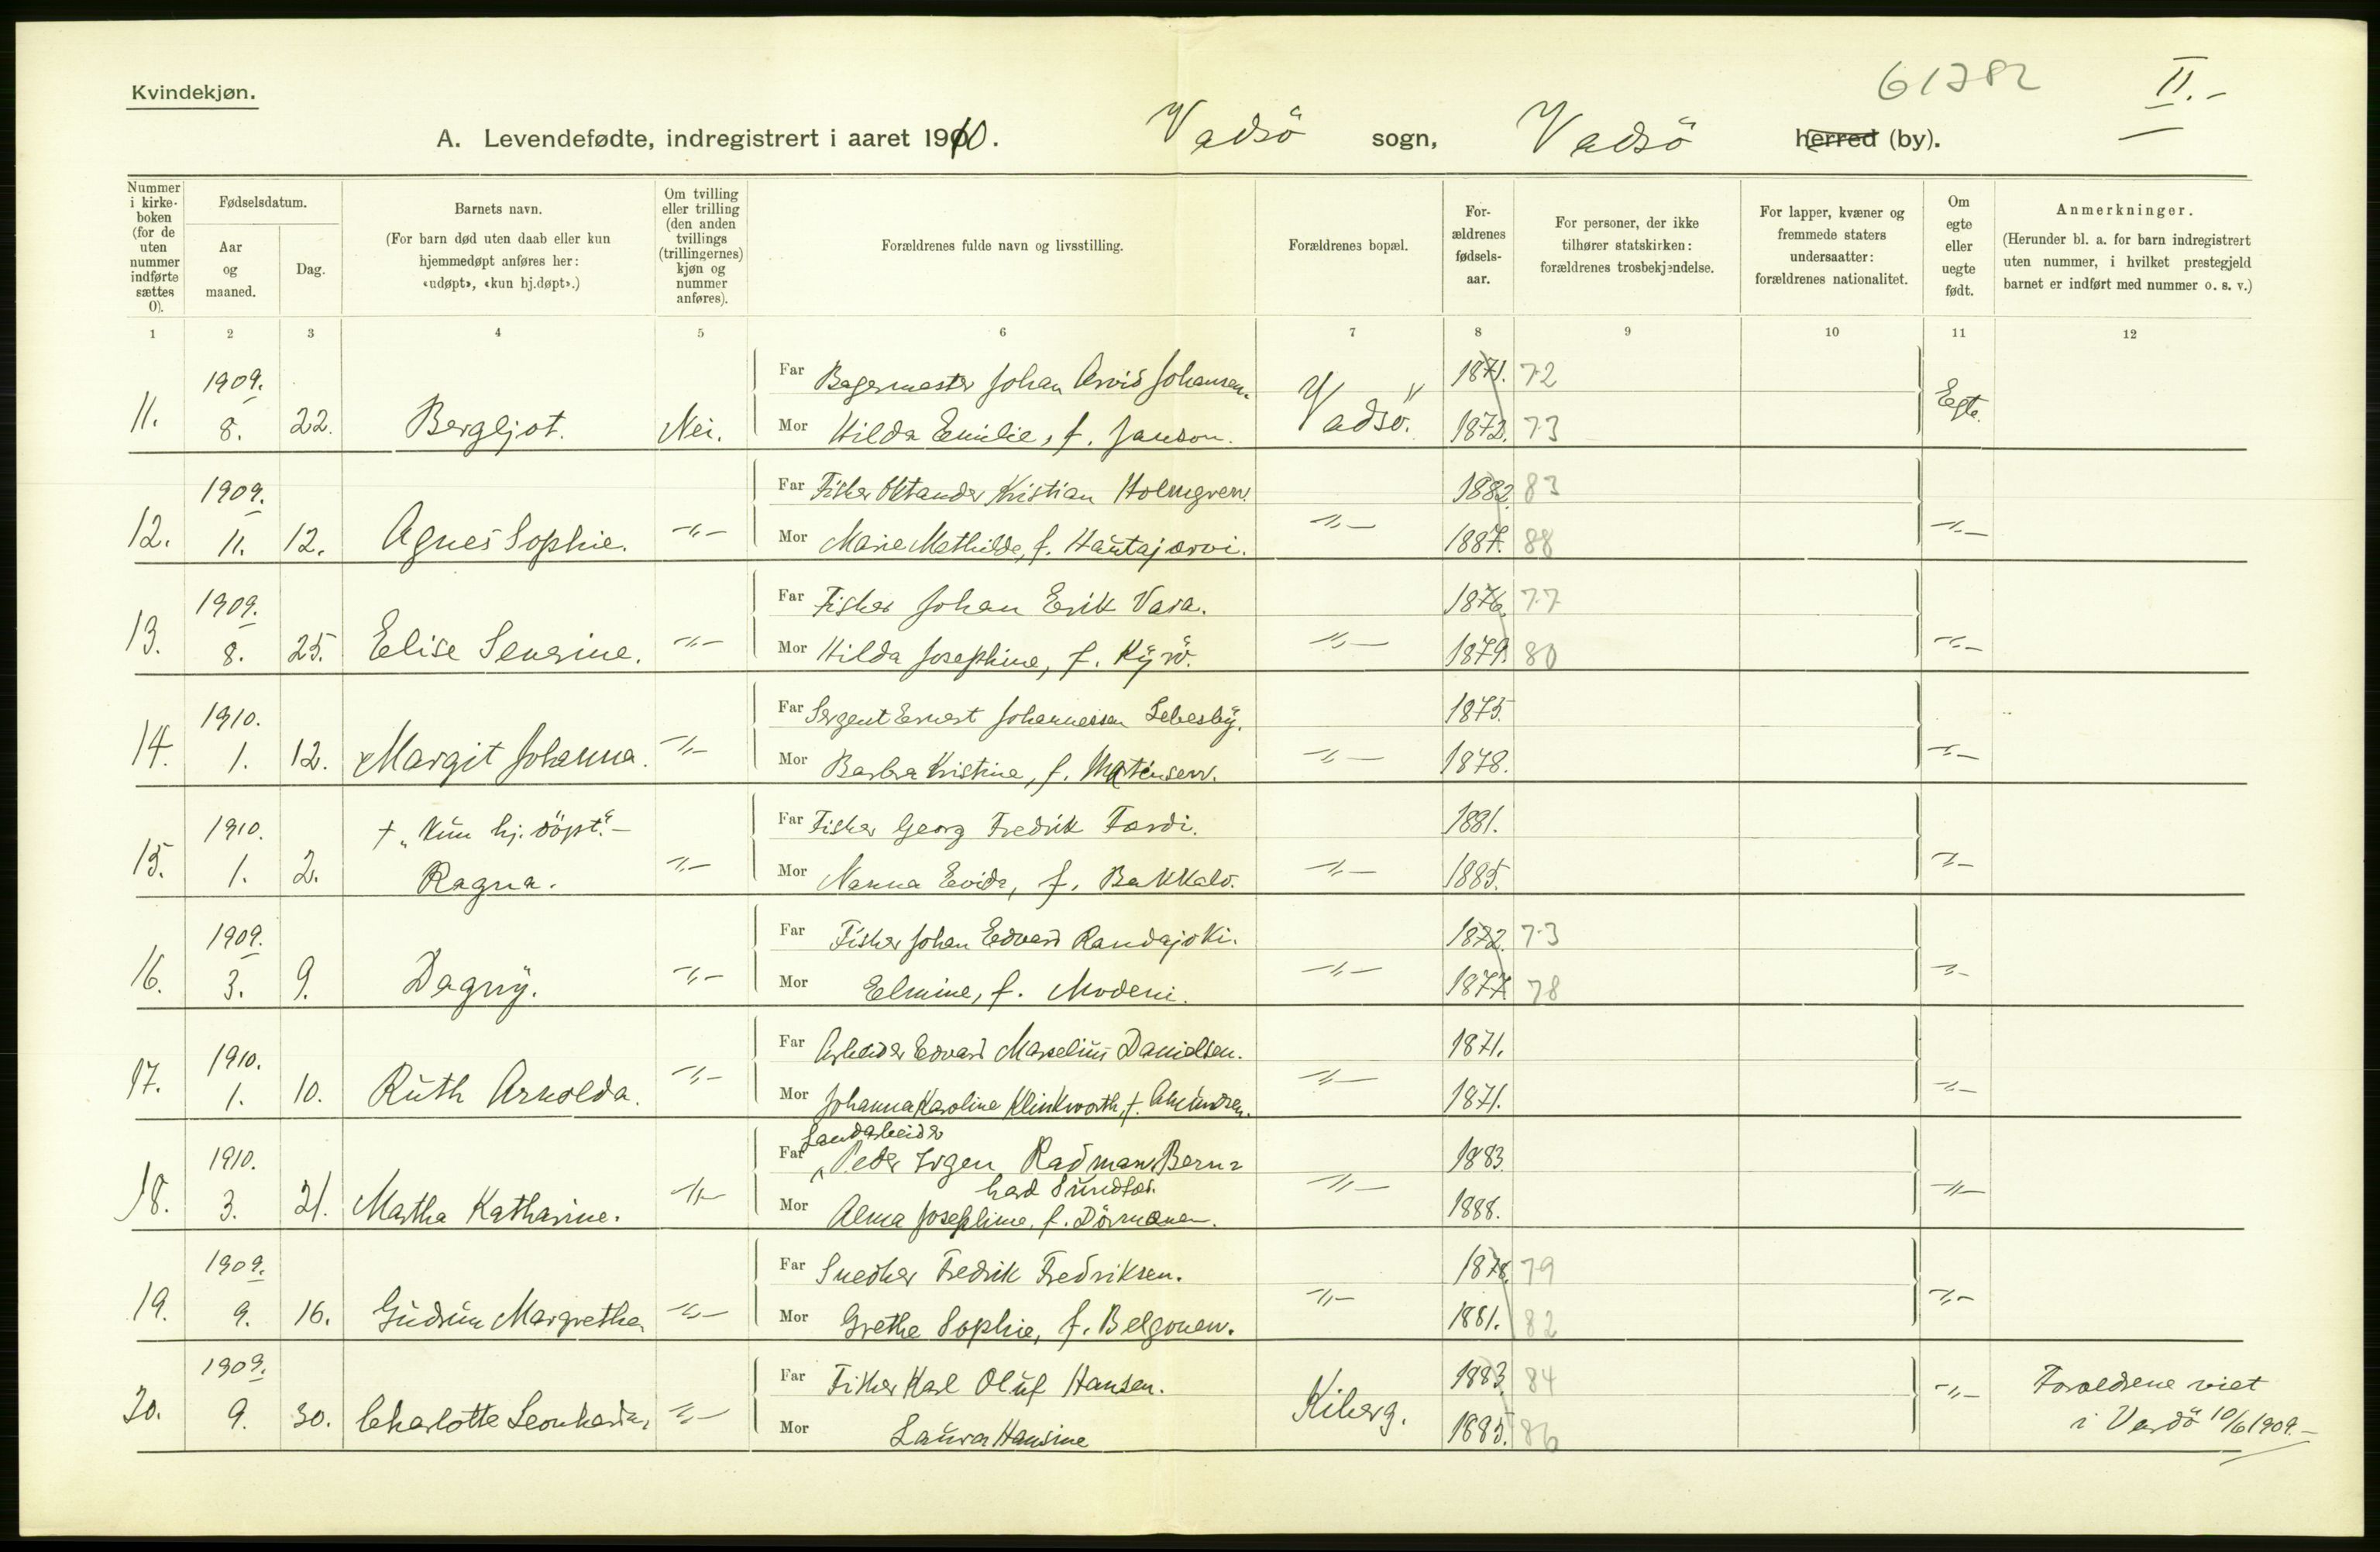 Kvindekjøn.
61782
II.-
A. Levendefødte, indregistrert i aaret 1910. Vadsö sogn, Vadsö herred (by).
Nummer i kirkeboken (for de uten nummer indførte sættes 0).
Fødselsdatum.
Aar og maaned.
Dag.
Barnets navn.
(For barn død uten daab eller kun hjemmedøpt anføres her: «udøpt», «kun hj.døpt».)
Om tvilling eller trilling (den anden tvillings (trillingernes) kjøn og nummer anføres).
Forældrenes fulde navn og livsstilling.
Forældrenes bopæl.
For-ældrenes fødsels-aar.
For personer, der ikke tilhører statskirken: forældrenes trosbekjendelse.
For lapper, kvæner og fremmede staters undersaatter: forældrenes nationalitet.
Om egte eller uegte født.
Anmerkninger.
(Herunder bl. a. for barn indregistrert uten nummer, i hvilket prestegjeld barnet er indført med nummer o. s. v.)
1 2 3 4 5 6 7 8 9 10 11 12
1909. Far Bagermester Johan Arvid Johansen. 1871. 72
11. 8. 22. Bergljot. Nei. Mor Hilda Emilie, f. Janson. Vadsö. 1872. 73 Egte.
1909. Far Fisker Oktander Kristian Holmgren 1882. 83
12. 11. 12. Agnes Sophie. -"- Mor Marie Mathilde, f. Hautajærvi. -"- 1887. 88 -"-
1909. Far Fisker Johan Erik Vara. 1876. 77
13. 8. 25. Elise Severine. -"- Mor Hilda Josephine, f. Kyrö. -"- 1879. 80 -"-
1910. Far Sergent Ernest Johannessen Lebesby. 1875.
14. 1. 12. Margit Johanna. -"- Mor Barbra Kristine, f. Mortensen. -"- 1878. -"-
1910. † "Kun hj. döpt."- Far Fisker Georg Fredrik Fordi. 1881.
15. 1. 2. Ragna. -"- Mor Nanna Evida, f. Bakkalo. -"- 1885. -"-
1909. Far Fisker Johan Edvard Randajoki. 1872. 73
16. 3. 9. Dagny. -"- Mor Elmine, f. Modeni. -"- 1877. 78 -"-
1910. Far Arbeider Edvard Marselius Danielsen. 1871.
17. 1. 10. Ruth Arnolda. -"- Mor Johanna Karoline Klinkworth, f. Amundsen. -"- 1871. -"-
Landarbeider
1910. Far Peder Irgen Radman Bern=
hard Sundfær. 1883.
18. 3. 21. Martha Katharine. -"- Mor Alma Josephine, f. Dörmænen. -"- 1888. -"-
1909. Far Snedker Fredrik Fredriksen. 1878. 79
19. 9. 16. Gudrun Margrethe. -"- Mor Grethe Sophie, f. Belgonen. -"- 1881. 82 -"-
1909. Far Fisker Karl Oluf Hansen. 1883. 84 Forældrene viet
20. 9. 30. Charlotte Leonharda. -"- Mor Laura Hansine Kiberg. 1885. 86 -"- i Vardö 10/6 1909.-